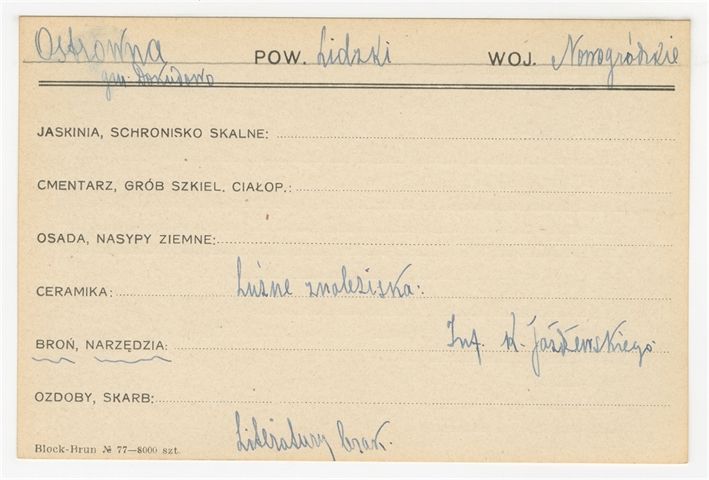 Ostrowna POW. Lidzki WOJ. Nowogródzkie
gm. Dokudowo
JASKINIA, SCHRONISKO SKALNE:
CMENTARZ, GRÓB SZKIEL. CIAŁOP.:
OSADA, NASYPY ZIEMNE:
CERAMIKA: Luźne znaleziska.
BROŃ, NARZĘDZIA: Inf. K. Jażdżewskiego
OZDOBY, SKARB:
Literatury brak.
Block-Brun № 77—8000 szt.